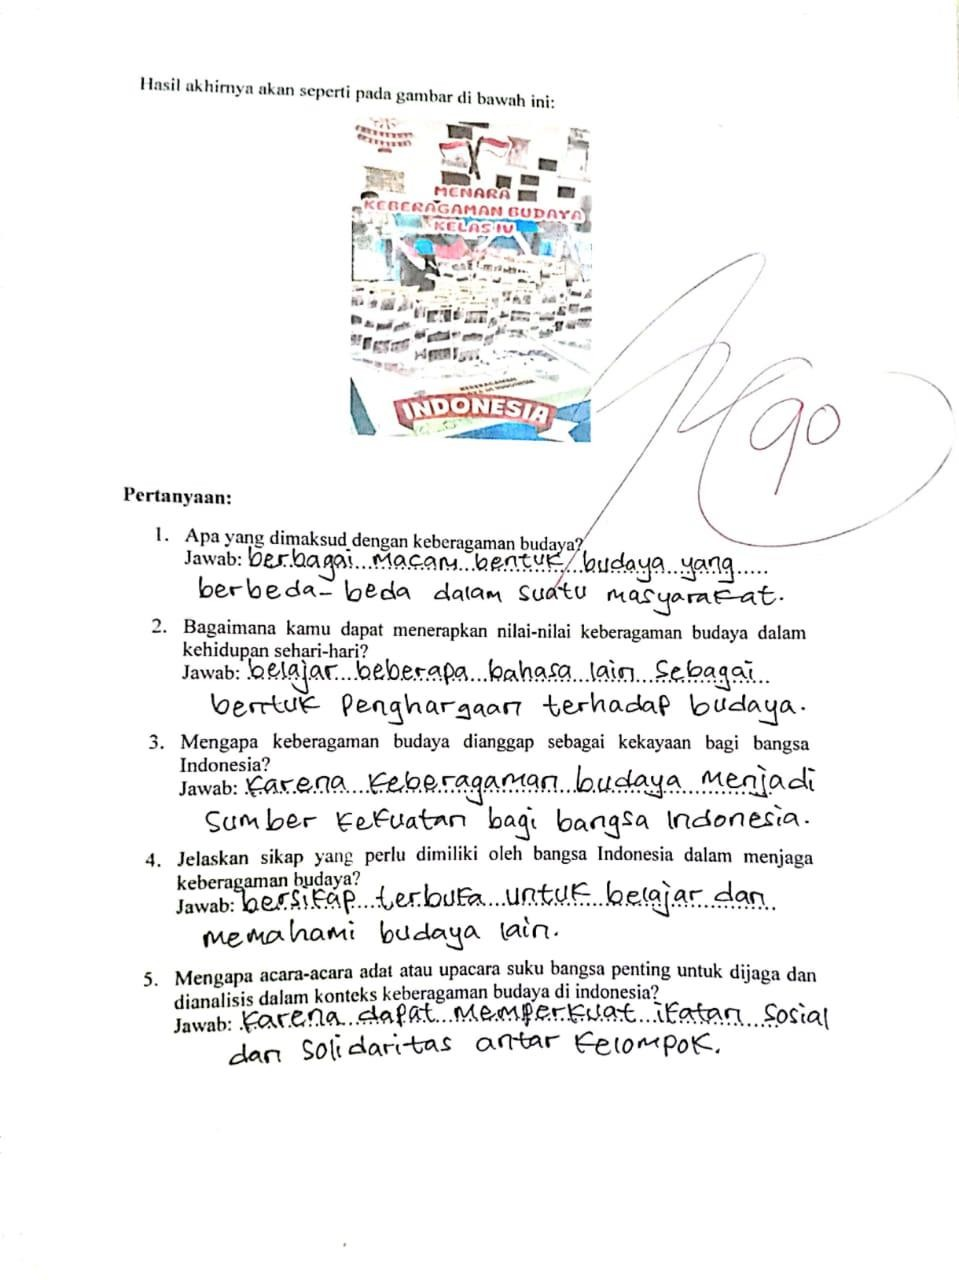 Hasil akhirnya akan seperti pada gambar di bawah ini:
MENARA
KEBERAGAMAN BUDAYA
KELAS IV
KEBERAGAMAN
INDONESIA
90
Pertanyaan:
1. Apa yang dimaksud dengan keberagaman budaya?
Jawab: berbagai macam bentuk budaya yang.....
berbeda-beda dalam suatu masyarakat.
2. Bagaimana kamu dapat menerapkan nilai-nilai keberagaman budaya dalam
kehidupan sehari-hari?
Jawab: belajar beberapa bahasa lain sebagai
bentuk Penghargaan terhadap budaya.
3. Mengapa keberagaman budaya dianggap sebagai kekayaan bagi bangsa
Indonesia?
Jawab: karena keberagaman budaya menjadi
sumber kekuatan bagi bangsa Indonesia.
4. Jelaskan sikap yang perlu dimiliki oleh bangsa Indonesia dalam menjaga
keberagaman budaya?
Jawab: bersikap terbuka untuk belajar dan
memahami budaya lain.
5. Mengapa acara-acara adat atau upacara suku bangsa penting untuk dijaga dan
dianalisis dalam konteks keberagaman budaya di indonesia?
Jawab: karena dapat memperkuat ikatan sosial
dan solidaritas antar kelompok.